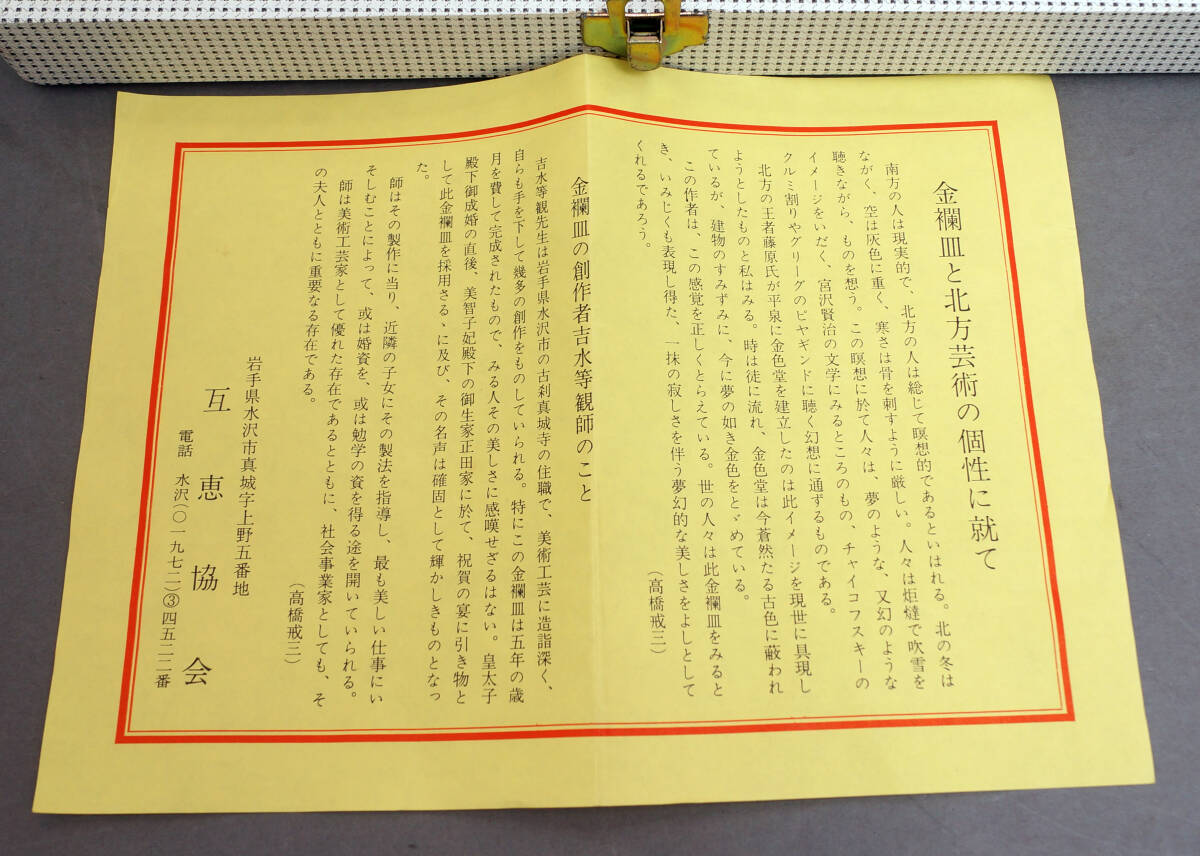 金襴皿と北方芸術の個性に就て
南方の人は現実的で、北方の人は総じて瞑想的であるといはれる。北の冬は
ながく、空は灰色に重く、寒さは骨を刺すように厳しい。人々は炬燵で吹雪を
聴きながら、ものを想う。この瞑想に於て人々は、夢のような、又幻のような
イメージをいだく、宮沢賢治の文学にみるところのもの、チャイコフスキーの
クルミ割りやグリーグのピヤギンドに聴く幻想に通ずるものである。
北方の王者藤原氏が平泉に金色堂を建立したのは此イメージを現世に具現し
ようとしたものと私はみる。時は徒に流れ、金色堂は今蒼然たる古色に蔽われ
ているが、建物のすみずみに、今に夢の如き金色をとゞめている。
この作者は、この感覚を正しくとらえている。世の人々は此金襴皿をみると
き、いみじくも表現し得た、一抹の寂しさを伴う夢幻的な美しさをよしとして
くれるであろう。
(高橋戒三)
金襴皿の創作者吉水等観師のこと
吉水等観先生は岩手県水沢市の古刹真城寺の住職で、美術工芸に造詣深く、
自らも手を下して幾多の創作をものしていられる。特にこの金襴皿は五年の歳
月を費して完成されたもので、みる人その美しさに感嘆せざるはない。皇太子
殿下御成婚の直後、美智子妃殿下の御生家正田家に於て、祝賀の宴に引き物と
して此金襴皿を採用さるゝに及び、その名声は確固として輝かしきものとなっ
た。
師はその製作に当り、近隣の子女にその製法を指導し、最も美しい仕事にい
そしむことによって、或は婚資を、或は勉学の資を得る途を開いていられる。
師は美術工芸家として優れた存在であるとともに、社会事業家としても、そ
の夫人とともに重要なる存在である。
(高橋戒三)
岩手県水沢市真城字上野五番地
互恵協会
電話 水沢(〇一九七二)③四五二二番